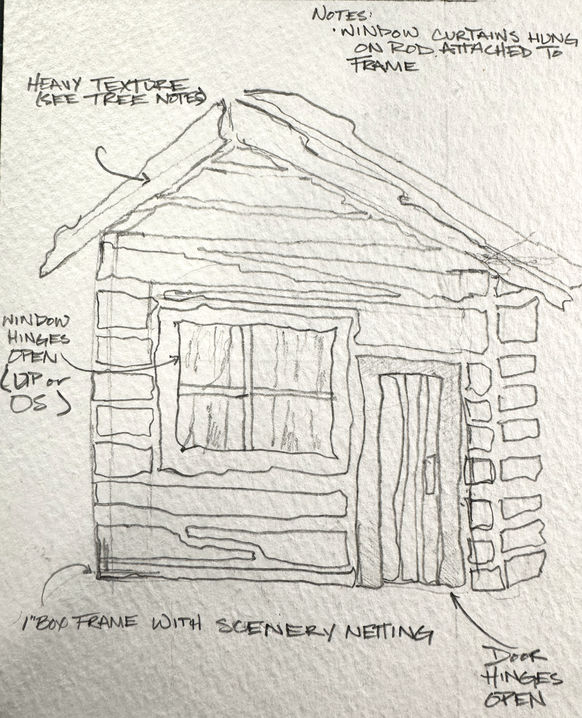 NOTES:
· WINDOW CURTAINS HUNG
ON ROD ATTACHED TO
FRAME
HEAVY TEXTURE
(SEE TREE NOTES)
WINDOW
HINGES
OPEN
(UP or
OS)
1" BOX FRAME WITH SCENERY NETTING
DOOR
HINGES
OPEN